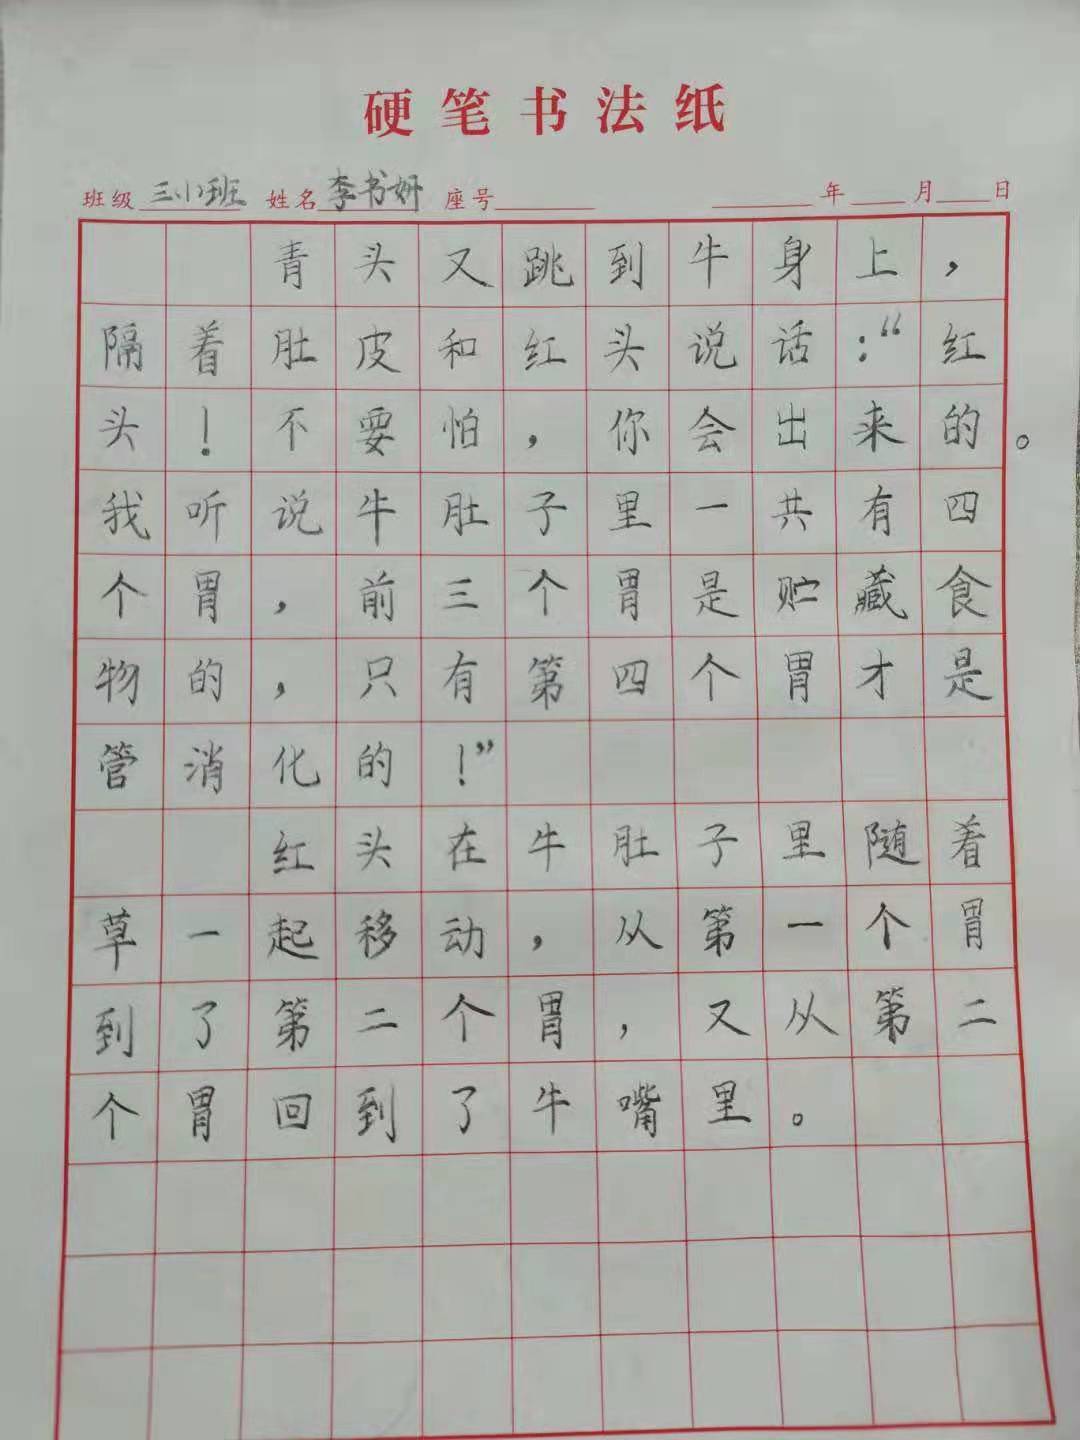 硬笔书法纸
班级 三小班 姓名 李书妍 座号 年 月 日
青头又跳到牛身上，
隔着肚皮和红头说话：“红
头！不要怕，你会出来的。
我听说牛肚子里一共有四
个胃，前三个胃是贮藏食
物的，只有第四个胃才是
管消化的！”
红头在牛肚子里随着
草一起移动，从第一个胃
到了第二个胃，又从第二
个胃回到了牛嘴里。